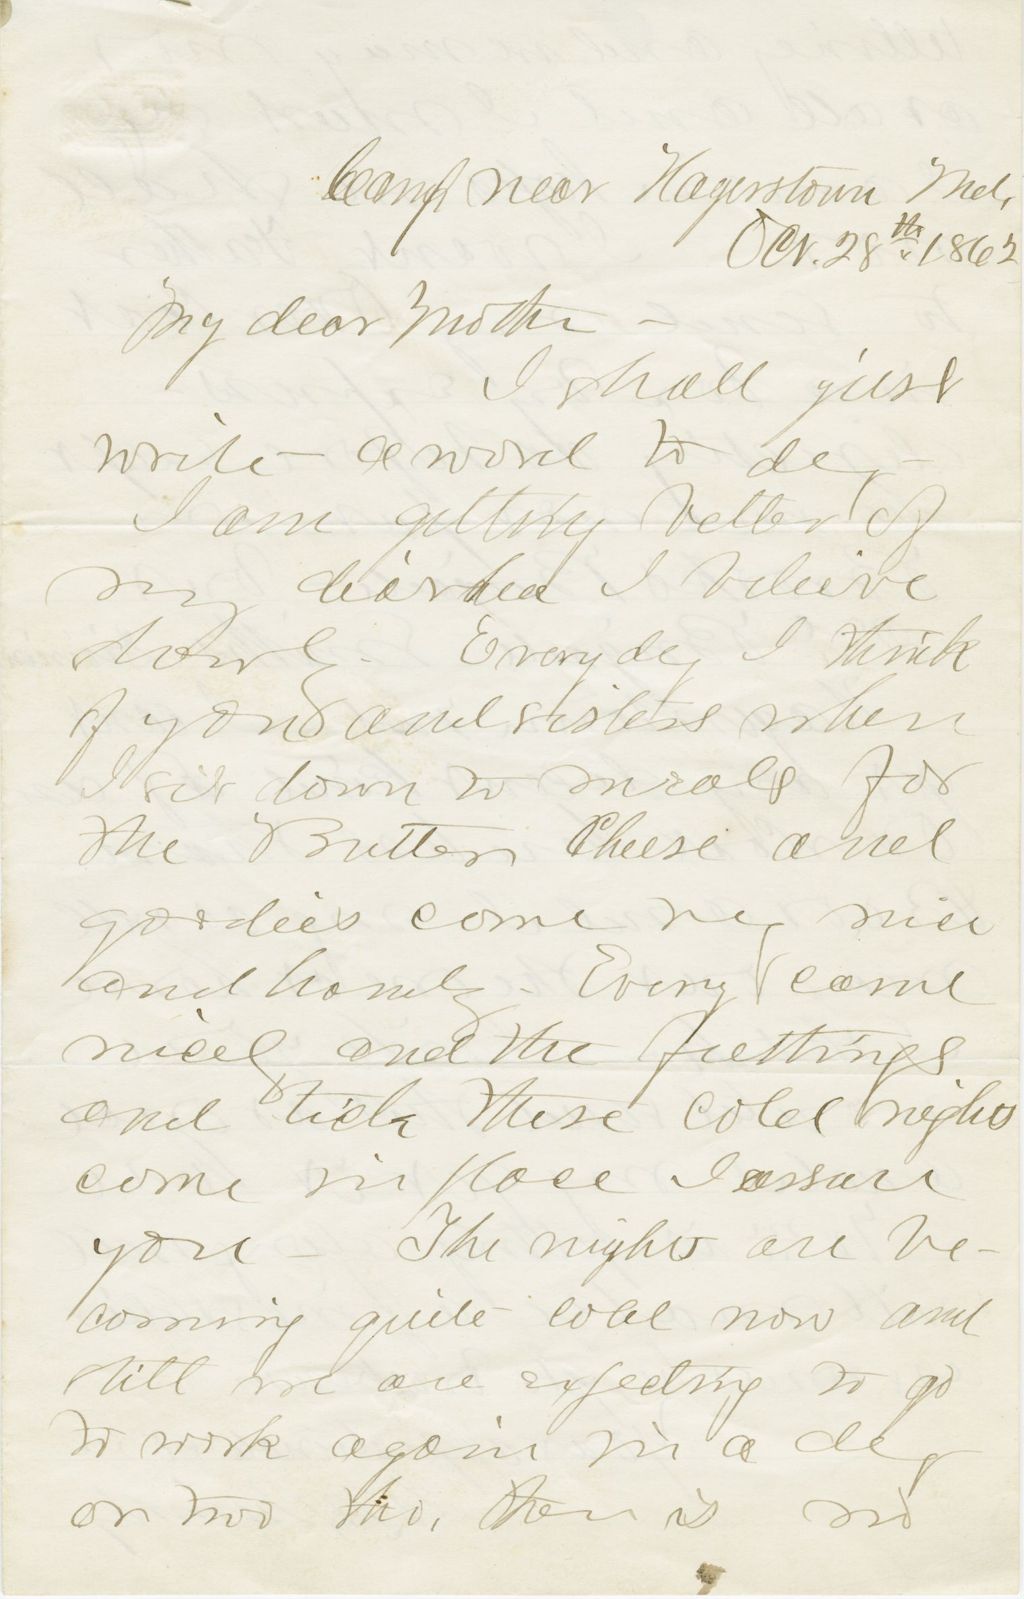 Camp near Hagerstown Md,
Oct. 28th 1862
My dear Mother -
I shall just
write a word to day -
I am getting better of
my diarhea I believe
slowly. Every day I think
of you and sisters when
I sit down to meals for
the Butter Cheese and
goodies come very nice
and handy. Every came
nicely and the
and tick these cold nights
come in place I assure
you - The nights are be-
coming quite cold now and
still we are expecting to go
to work again in a day
or two tho, there is no